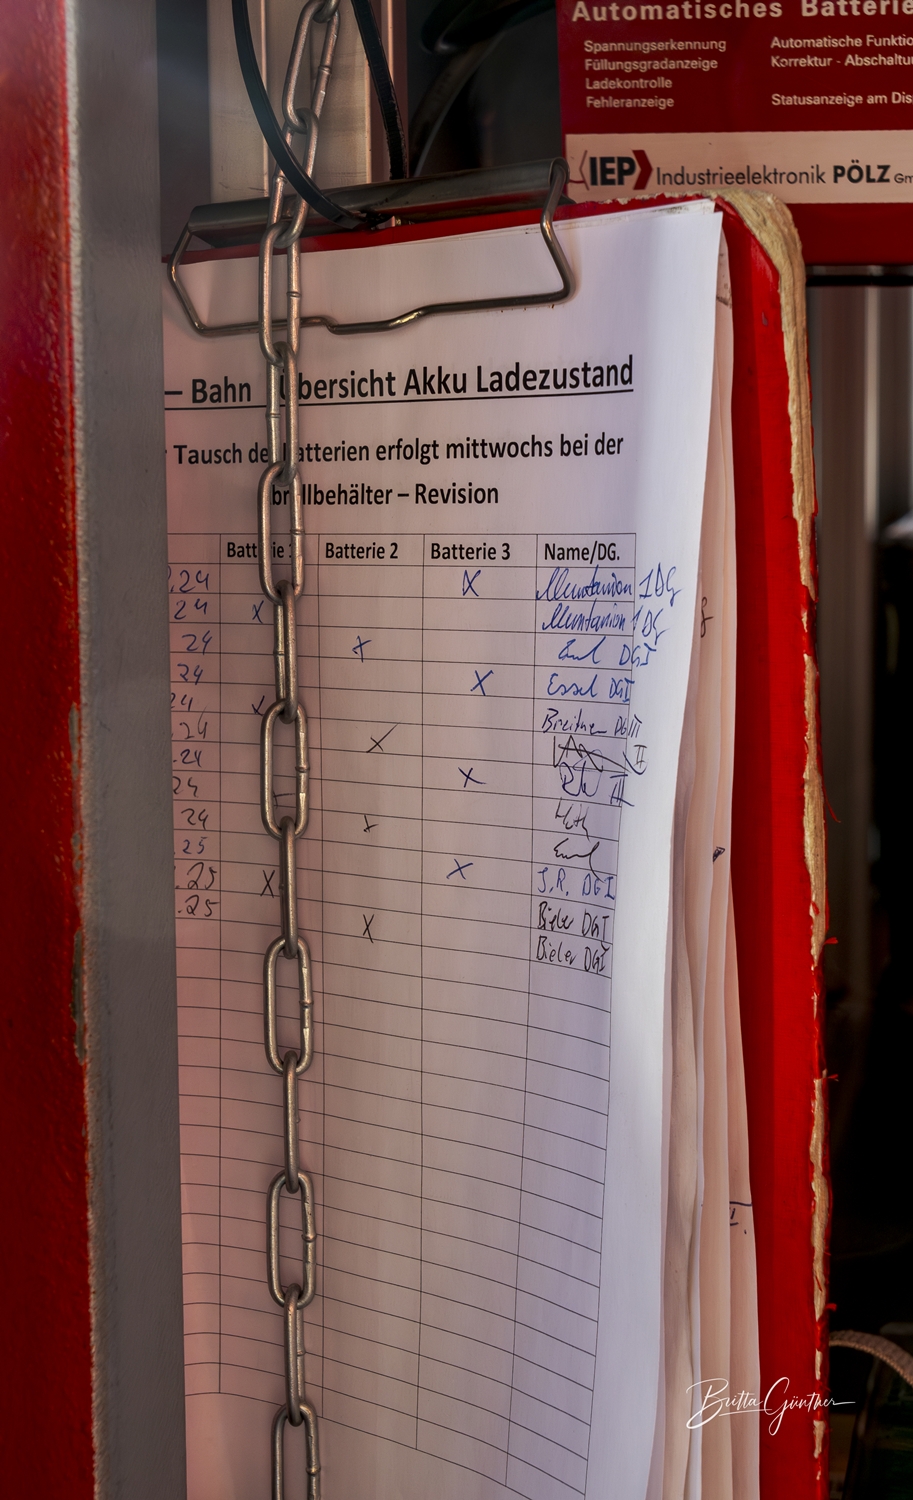 Automatisches Batterie
Spannungserkennung
Füllungsgradanzeige
Ladekontrolle
Fehleranzeige
Automatische Funktio
Korrektur - Abschaltu
Statusanzeige am Dis
IEP Industrieelektronik PÖLZ Gm
– Bahn Übersicht Akku Ladezustand
Tausch der Batterien erfolgt mittwochs bei der
– Revision
Batterie 1 Batterie 2 Batterie 3 Name/DG.
.24 X 1DG
24 X 1DG
24 X DGI
24 X Essel DGI
24 X DGIII
.24 X II
.24 X II
24
24 X
25
.25 X X J.R. DGI
.25 X Bieler DGI
Bieler DGI
Britta Günther